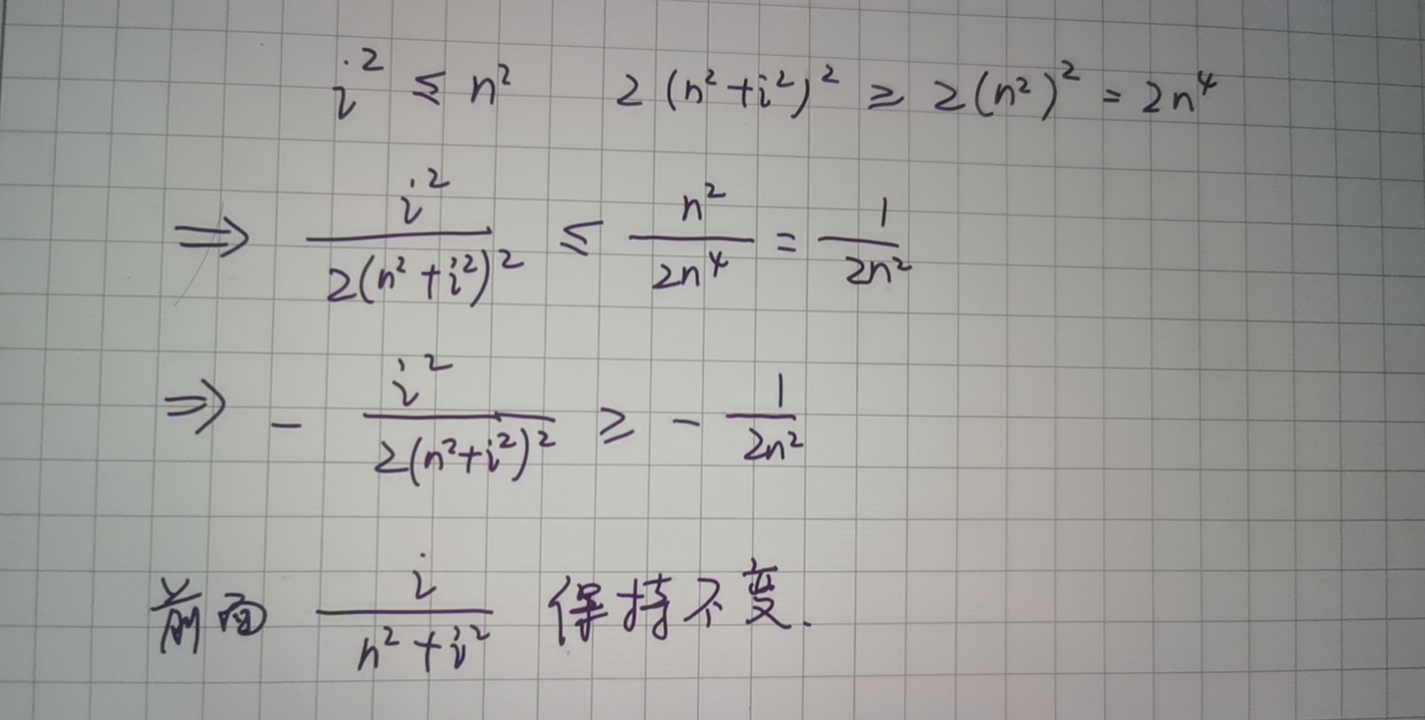 i² ≤ n² 2(n²+i²)² ≥ 2(n²)² = 2n⁴
⇒ i²/2(n²+i²)² ≤ n²/2n⁴ = 1/2n²
⇒ - i²/2(n²+i²)² ≥ - 1/2n²
前面 i/n²+i² 保持不变.